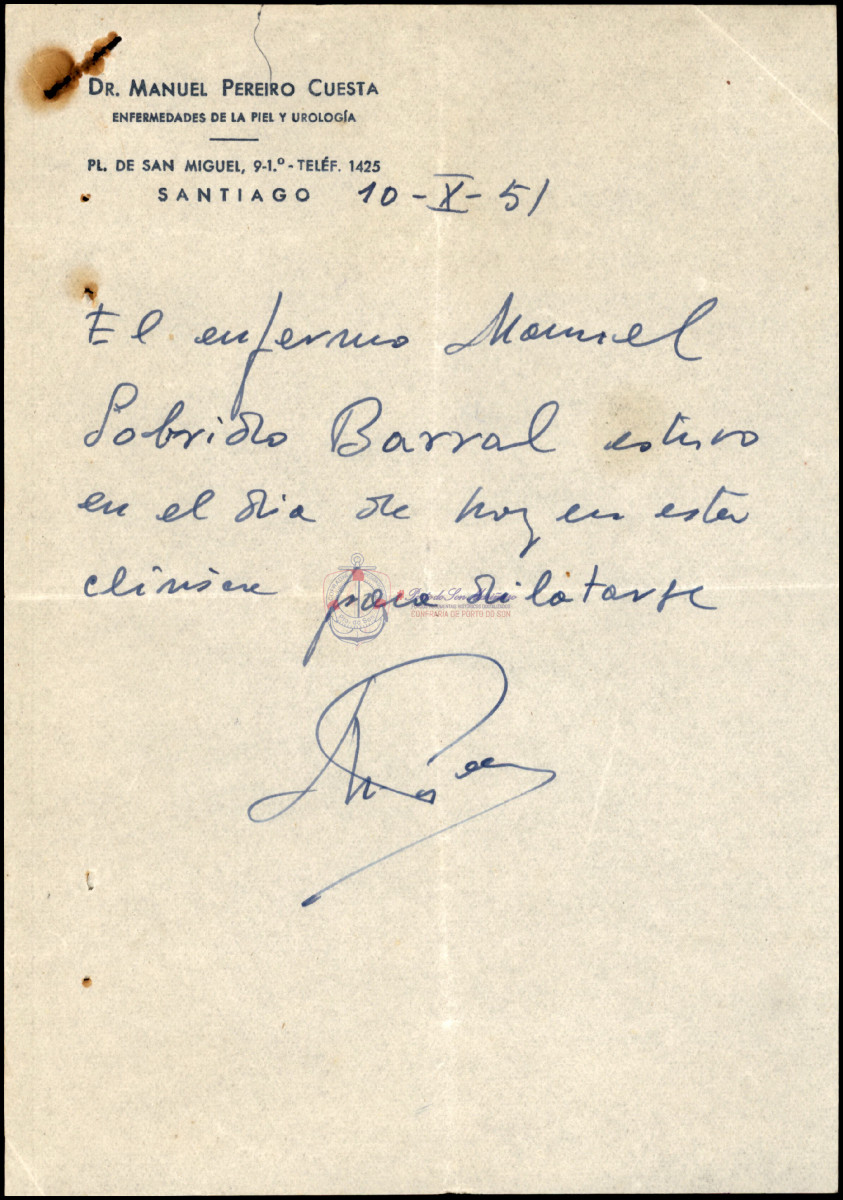 DR. MANUEL PEREIRO CUESTA
ENFERMEDADES DE LA PIEL Y UROLOGÍA
PL. DE SAN MIGUEL, 9-1.º - TELÉF. 1425
SANTIAGO 10-X-51
El enfermo Manuel
Sobrido Barral estuvo
en el dia de hoy en esta
clínica para dilatarse
CONFRARÍA DE PORTO DO SON